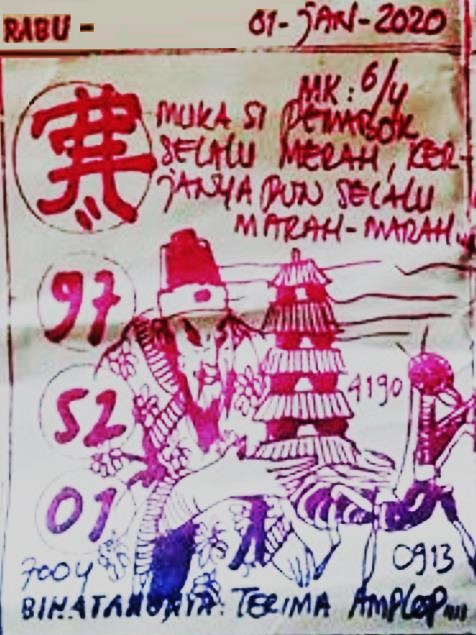 RABU - 01-JAN-2020
MK: 6/4
MUKA SI PEMABOK
SELALU MERAH, KER-
JANYA PUN SELALU
MARAH-MARAH
97
52
01
4190
0913
7004
TERIMA AMPLOP